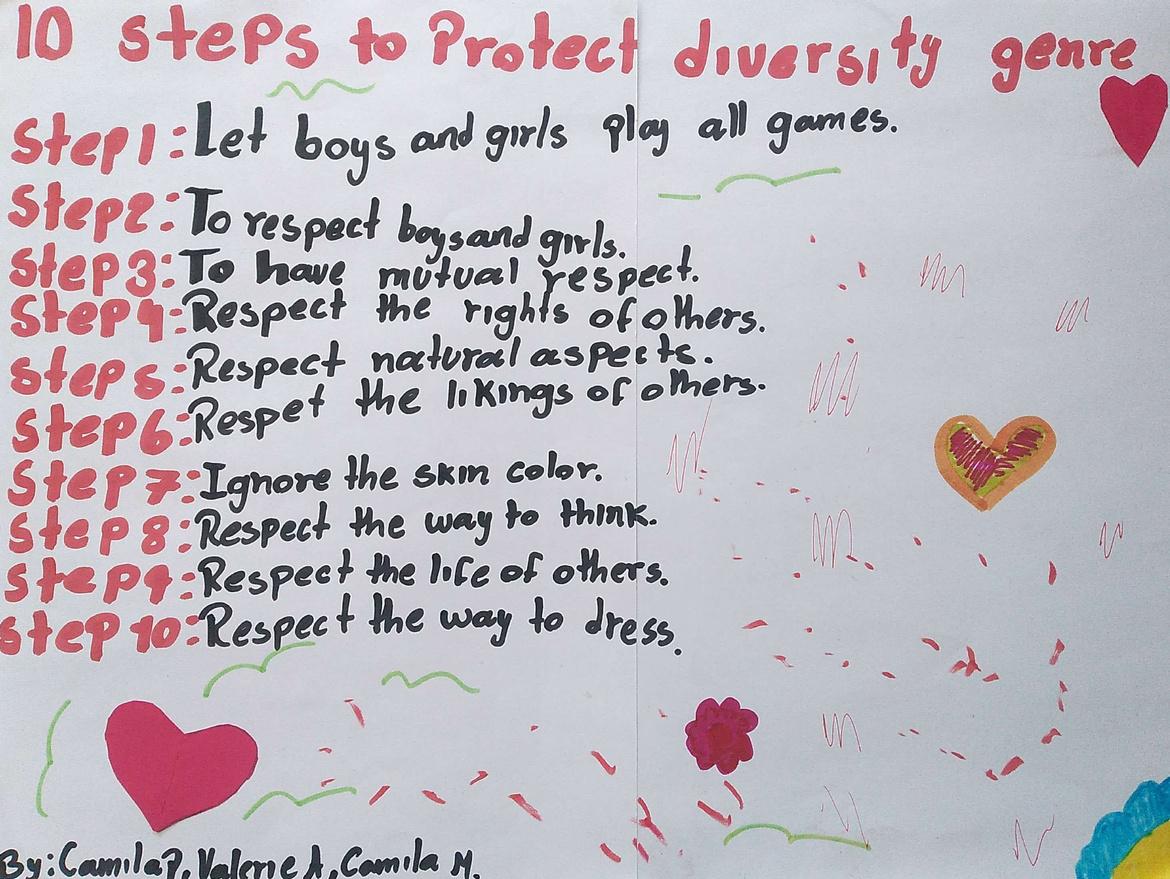 10 steps to Protect diversity genre
Step1: Let boys and girls play all games.
Step2: To respect boys and girls.
Step3: To have mutual respect.
Step4: Respect the rights of others.
Step5: Respect natural aspects.
Step6: Respet the likings of others.
Step7: Ignore the skin color.
Step8: Respect the way to think.
Step9: Respect the life of others.
Step10: Respect the way to dress.
By: Camila P, Valerie A, Camila M.